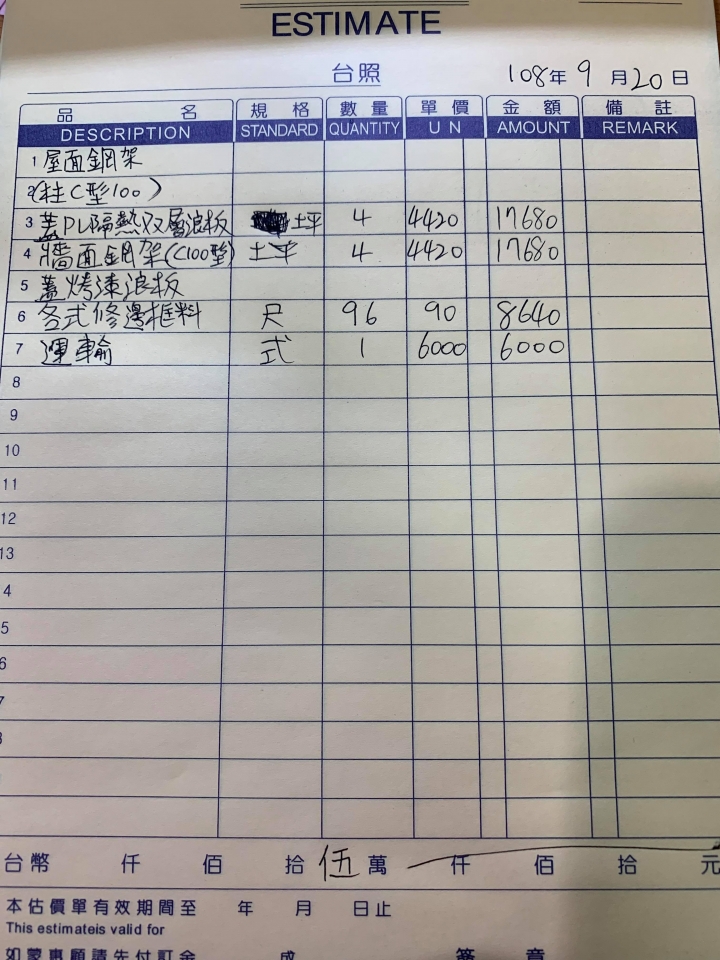 ESTIMATE
台照 108年 9月20日
品名 規格 數量 單價 金額 備註
DESCRIPTION STANDARD QUANTITY U N AMOUNT REMARK
1 屋面鋼架
2 (柱C型100)
3 蓋PU隔熱双層浪板 坪 4 4420 17680
4 牆面鋼架(C100型) 坪 4 4420 17680
5 蓋烤漆浪板
6 各式修邊框料 尺 96 90 8640
7 運輸 式 1 6000 6000
8
9
10
11
12
13
4
5
6
7
台幣 仟 佰 拾 伍萬 仟 佰 拾 元
本估價單有效期間至 年 月 日止
This estimateis valid for
如蒙惠顧請先付訂金 成 簽章